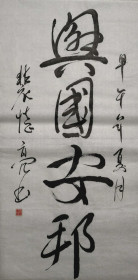 甲午年夏月
興國安邦
裴亮书